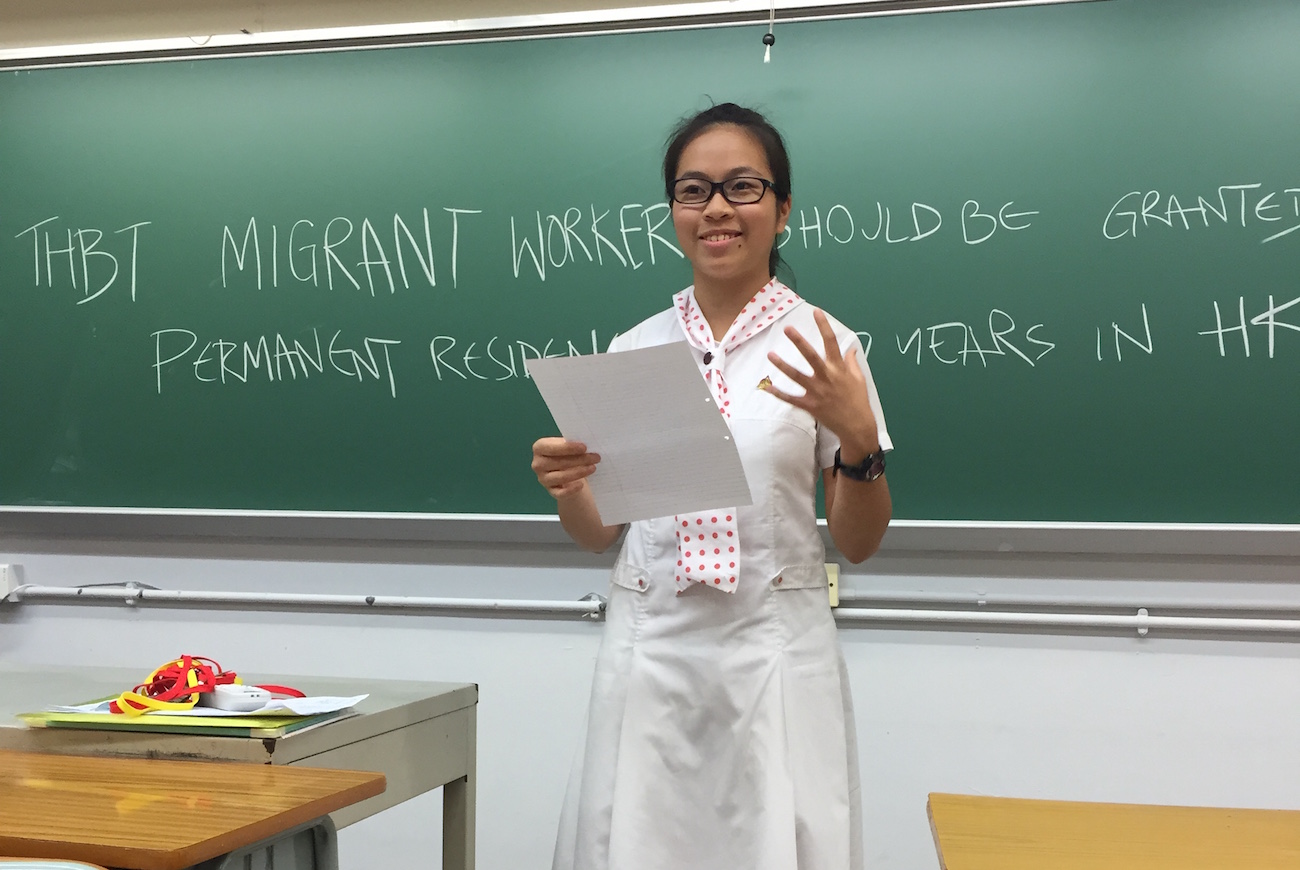 THBT MIGRANT WORKER SHOULD BE GRANTED
PERMANENT YEARS IN HK